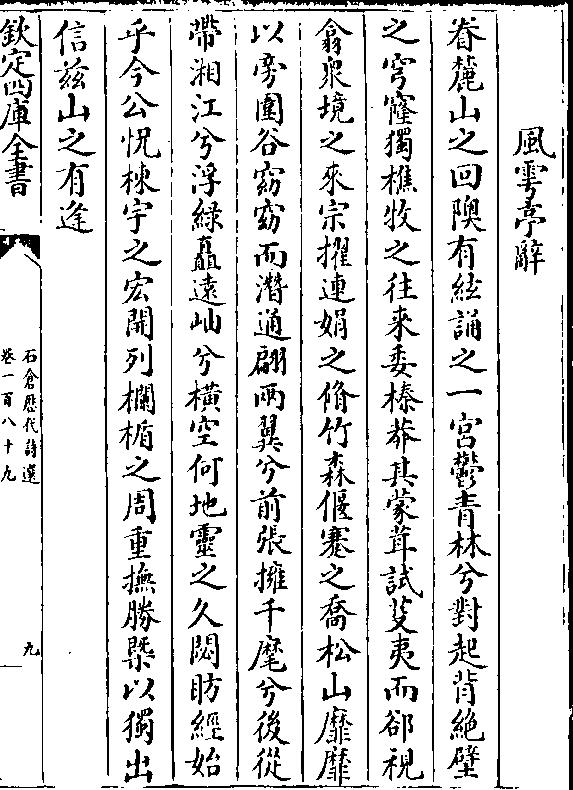 風雩亭辭
眷麓山之回隩有絃誦之一宮鬱青林兮對起背絶壁
之穹窿獨樵牧之往來委榛莽其蒙茸試芟夷而郤視
翕衆境之來宗擢連娟之脩竹森偃蹇之喬松山靡靡
以旁圍谷窈窈而潛通翩兩翼兮前張擁千麾兮後從
帶湘江兮浮綠矗遠岫兮橫空何地靈之久閟昉經始
乎今公怳棟宇之宏開列欄楯之周重撫勝槩以獨出
信兹山之有逢
欽定四庫全書
石倉歷代詩選
卷一百八十九
九